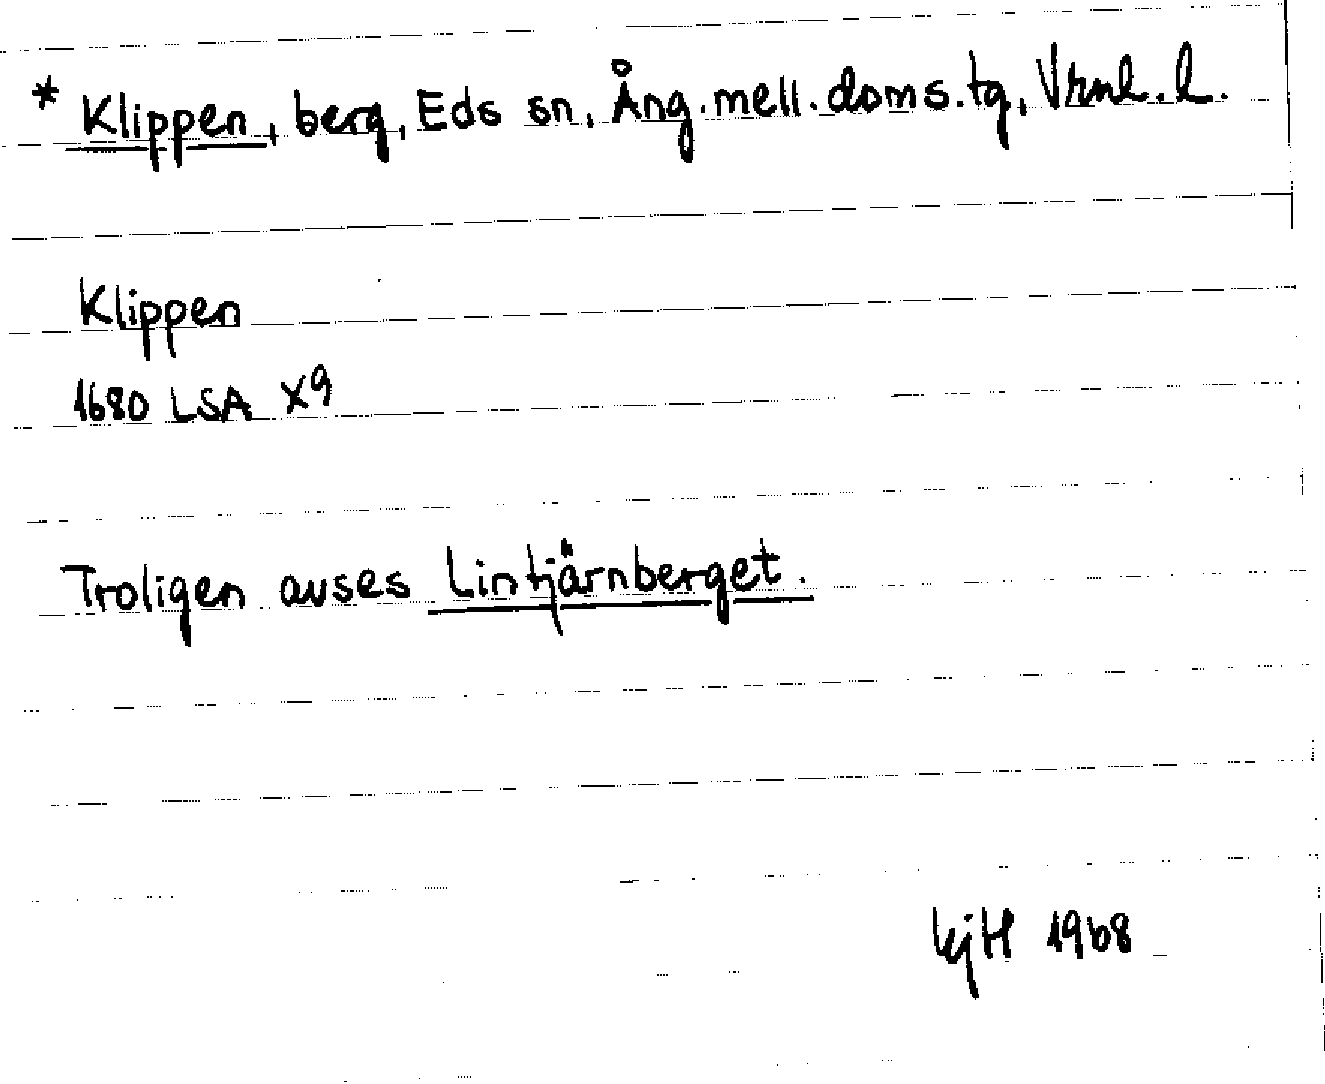 * Klippen, berg, Eds sn, Ång.mell.doms.tg, Vrnl.l.
Klippen
1680 LSA X9
Troligen avses Lintjärnberget.
KjH 1968